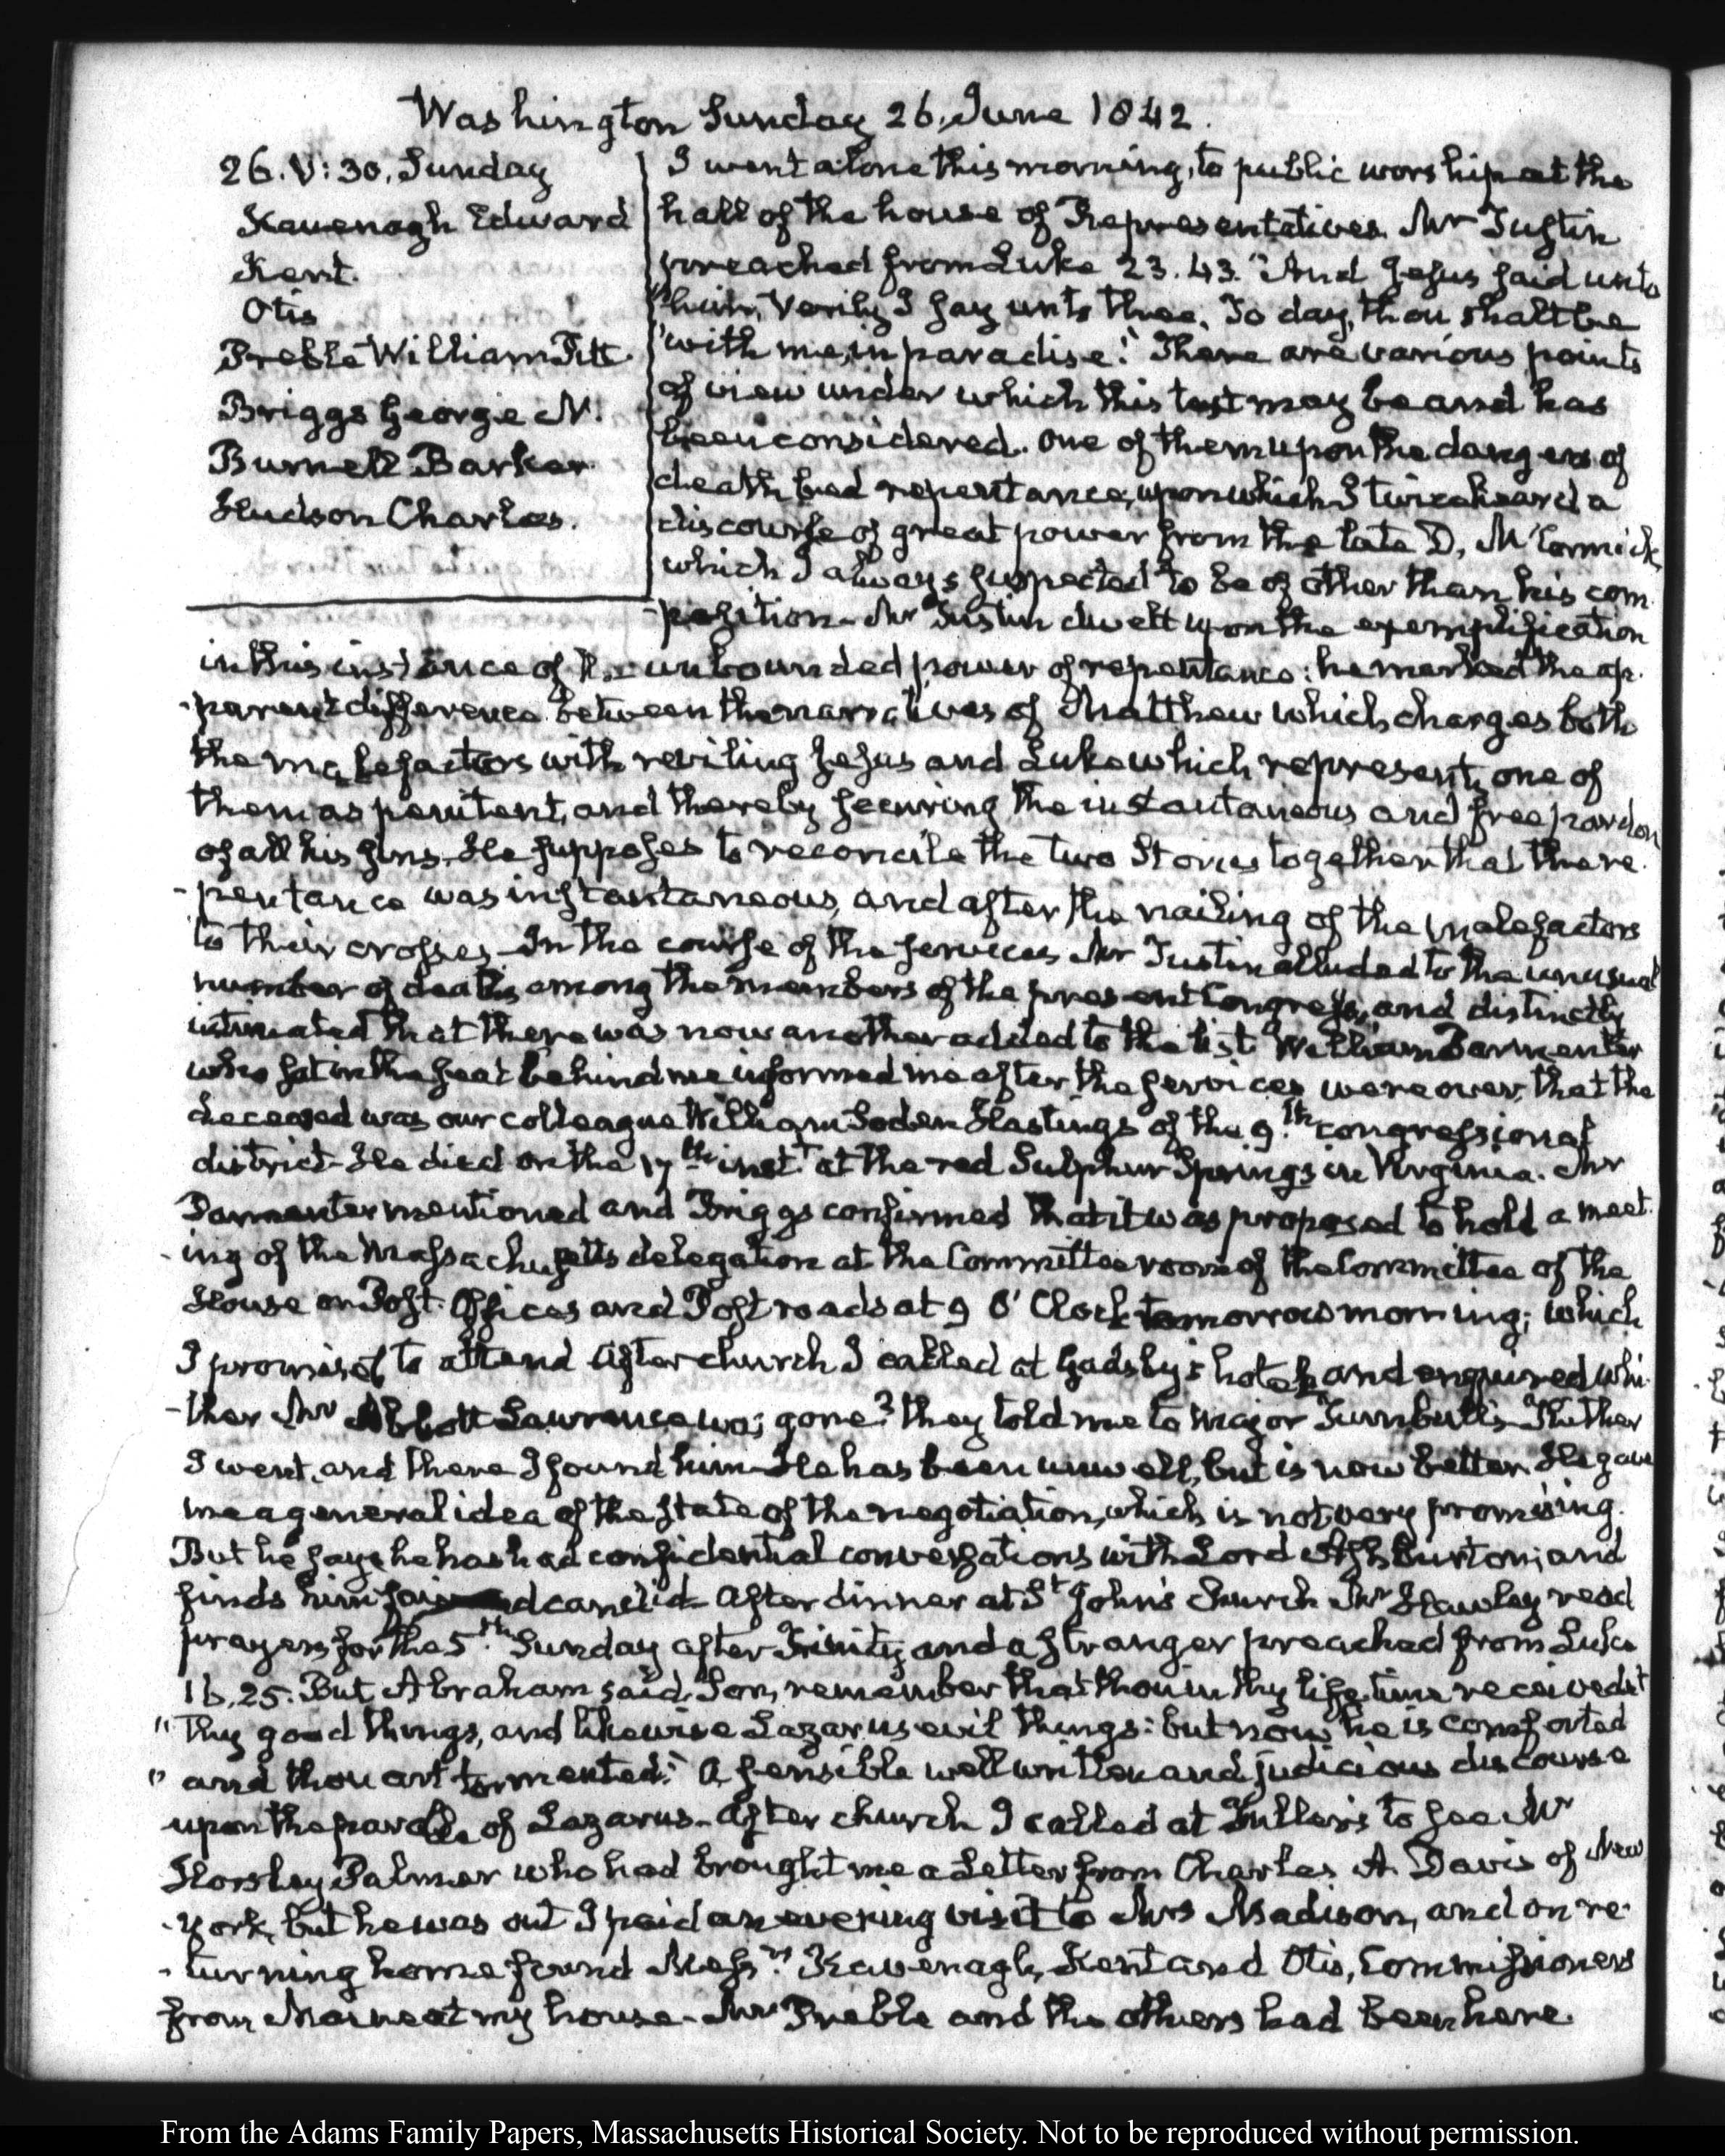 Washington Sunday 26. June 1842.
26. V: 30. Sunday
Kavenagh Edward
Kent.
Otis
Preble William Pitt.
Briggs George N.
Burnell Barker
Hudson Charles.
I went alone this morning, to public worship at the
hall of the house of Representatives. Mr Tustin
preached from Luke 23. 43. "And Jesus said unto
"him, Verily I say unto thee, To day, thou shalt be
"with me, in paradise." There are various points
of view under which this text may be and has
been considered. One of them upon the dangers of
death bed repentance, upon which I twice heard a
discourse of great power from the late D, McCormick,
which I always suspected to be of other than his com
-position- Mr Tustin dwelt upon the exemplification
in this instance of the unbounded power of repentance: he marked the ap-
-parent difference between the narratives of Matthew which charges both
the malefactors with reviling Jesus and Luke which represents one of
them as penitent, and thereby securing the instantaneous and free pardon
of all his sins. He supposes to reconcile the two Stories together that the re-
-pentance was instantaneous, and after the nailing of the malefactors
to their crosses- In the course of the services Mr Tustin alluded to the unusual
number of deaths among the members of the present Congress, and distinctly
intimated that there was now another added to the list. William Parmenter
who sat in the seat behind me informed me after the services were over, that the
deceased was our colleague William Soden Hastings of the 9.th congressional
district- He died on the 17th inst.t at the red Sulphur Springs in Virginia. Mr
Parmenter mentioned and Briggs confirmed that it was proposed to hold a meet-
-ing of the Massachusetts delegation at the Committee room of the Committee of the
House on Post-Offices and Post roads at 9 O'Clock tomorrow morning; which
I promised to attend After church I called at Gadsby's hotel, and enquired whi-
-ther Mr Abbott Lawrence was gone? they told me to Major Turnbull's- Thither
I went, and there I found him- He has been unwell, but is now better. He gave
me a general idea of the state of the negotiation, which is not very promising.
But he says he has had confidential conversations with Lord Ashburton; and
finds him fair and candid- After dinner at St John's Church Mr Hawley read
prayers for the 5.th Sunday after Trinity, and a stranger preached from Luke
16. 25. But Abraham said, Son, remember that thou in thy life time receivedst
"thy good things, and likewise Lazarus evil things: but now he is comforted
"and thou art tormented." A sensible well written and judicious discourse
upon the parable of Lazarus- After church I called at Fuller's to see Mr
Horsley Palmer who had brought me a Letter from Charles A. Davis of New
-York, but he was out I paid an evening visit to Mrs Madison, and on re-
-turning home found Mess.rs Kavenagh, Kent and Otis, Commissioners
from Maine at my house- Mr Preble and the others had been here
From the Adams Family Papers, Massachusetts Historical Society. Not to be reproduced without permission.